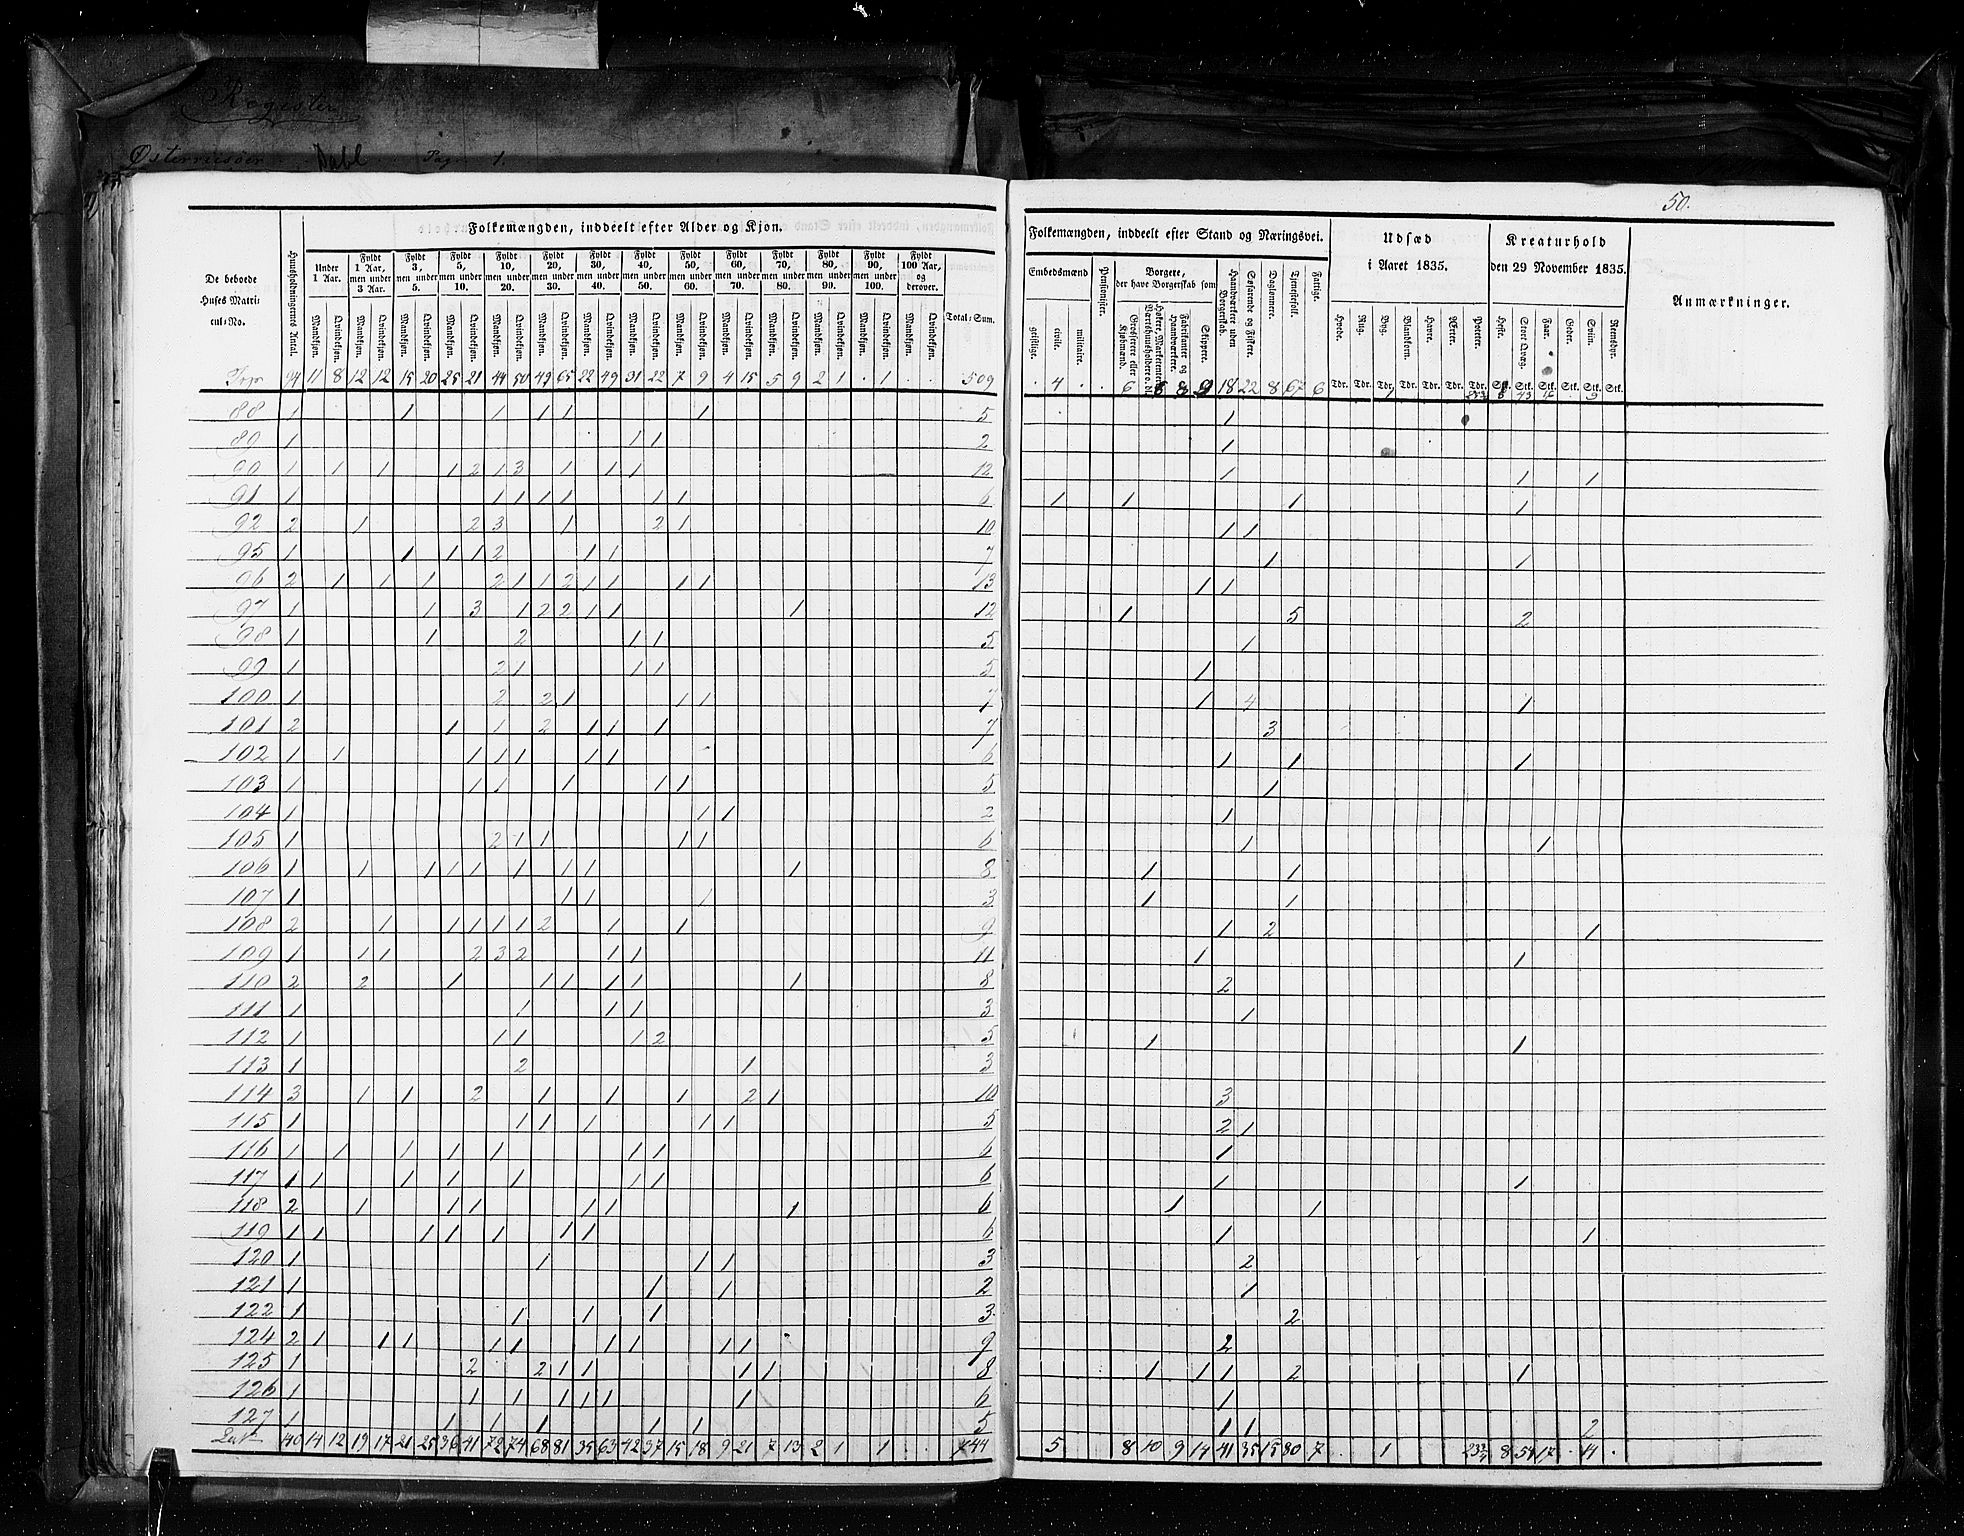 Register
Østerriisöer Dahl Pag. 1.
50.
Folkemængden, inddeelt efter Alder og Kjøn.
De beboede Huses Matricul-No.
Huusholdningernes Antal.
Under 1 Aar.
Fyldt 1 Aar, men under 3 Aar.
Fyldt 3, men under 5.
Fyldt 5, men under 10.
Fyldt 10, men under 20.
Fyldt 20, men under 30.
Fyldt 30, men under 40.
Fyldt 40, men under 50.
Fyldt 50, men under 60.
Fyldt 60, men under 70.
Fyldt 70, men under 80.
Fyldt 80, men under 90.
Fyldt 90, men under 100.
Fyldt 100 Aar, og derover.
Total-Sum.
Mandkjøn. Qvindekjøn. Mandkjøn. Qvindekjøn. Mandkjøn. Qvindekjøn. Mandkjøn. Qvindekjøn. Mandkjøn. Qvindekjøn. Mandkjøn. Qvindekjøn. Mandkjøn. Qvindekjøn. Mandkjøn. Qvindekjøn. Mandkjøn. Qvindekjøn. Mandkjøn. Qvindekjøn. Mandkjøn. Qvindekjøn. Mandkjøn. Qvindekjøn. Mandkjøn. Qvindekjøn. Mandkjøn. Qvindekjøn.
94 11 8 12 12 15 20 25 21 44 50 49 65 22 49 31 22 7 9 4 15 5 9 2 1 . 1 . . 509
88 1 1 1 1 1 1 5
89 1 1 1 2
90 1 1 1 1 2 1 3 1 1 1 12
91 1 1 1 1 1 1 1 6
92 2 1 2 3 1 2 1 10
95 1 1 1 1 2 1 1 7
96 2 1 1 1 2 1 1 2 1 1 1 1 13
97 1 1 3 1 2 2 1 1 1 12
98 1 1 2 1 1 5
99 1 2 1 1 1 5
100 1 2 2 1 1 1 7
101 2 1 1 2 1 1 1 7
102 1 1 1 1 1 1 1 6
103 1 1 1 1 1 1 5
104 1 1 1 2
105 1 2 1 1 1 1 6
106 1 1 1 1 1 1 1 1 1 8
107 1 1 1 1 3
108 2 1 1 1 1 1 2 1 1 9
109 1 1 1 2 3 2 1 1 11
110 2 2 1 1 1 1 1 1 8
111 1 1 1 1 3
112 1 1 1 1 2 5
113 1 2 1 3
114 3 1 1 2 1 1 1 2 1 10
115 1 1 1 1 1 1 5
116 1 1 1 1 1 1 1 6
117 1 1 1 1 1 1 1 6
118 2 1 1 1 1 1 1 6
119 1 1 1 1 1 1 1 6
120 1 1 1 1 3
121 1 1 1 2
122 1 1 1 1 3
124 2 1 1 1 1 1 1 1 1 1 9
125 1 2 2 1 1 1 1 8
126 1 1 1 1 1 1 1 6
127 1 1 1 1 1 1 5
140 14 12 19 17 21 25 36 41 72 74 68 81 35 63 42 37 15 18 9 21 7 13 2 1 . 1 . . 744
Folkemængden, inddeelt efter Stand og Næringsvei.
Embedsmænd
geistlige. civile. militaire.
Pensionister.
Borgere, der have Borgerskab som
Grosserere eller Kjøbmænd.
Fabrikanter og Haandværkere.
Skippere.
Haandværkere uden Borgerskab.
Søfarende og Fiskere.
Daglønnere.
Tjenestefolk.
Fattige.
Udsæd i Aaret 1835.
Hvede. Rug. Byg. Blandkorn. Havre. Ærter. Poteter.
Tdr. Tdr. Tdr. Tdr. Tdr. Tdr. Tdr.
Kreaturhold den 29 November 1835.
Heste. Stort Qvæg. Faar. Geder. Sviin. Reensdyr.
Stk. Stk. Stk. Stk. Stk. Stk.
Anmærkninger.
. 4 . . 6 8 9 18 22 8 67 6
1
1
1 1 1
1 1 1 1
1 1
1 1
1 1
1 5 2
1
1
1 4 1
3
1 1 1
1
1
1 1
1 1
1 1
1 2 1
1 1
2
1
1 1
3
2 1
1
1 1
1 1
1 1
2
1
2
2
1 1 1 2 1
1
1 1 2
5 8 10 9 14 41 35 15 80 7 . 1 8 54 17 . 14 .